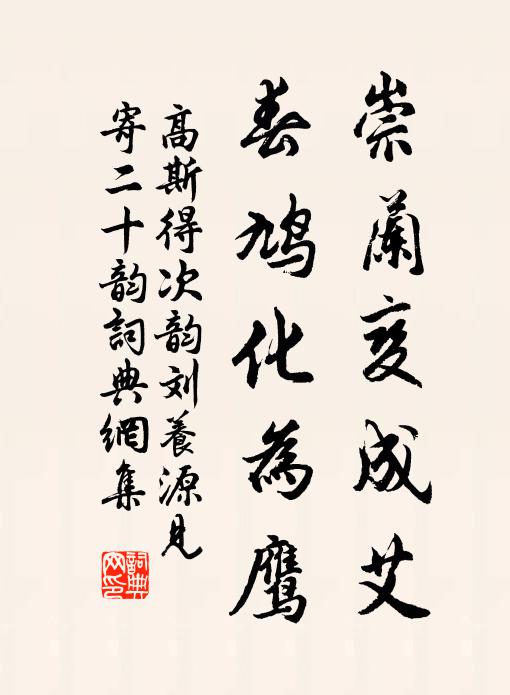 崇蘭变成艾
春鸠化為鹰
高斯得次韵刘養源見
寄二十韵詞典網集
詞典
网印